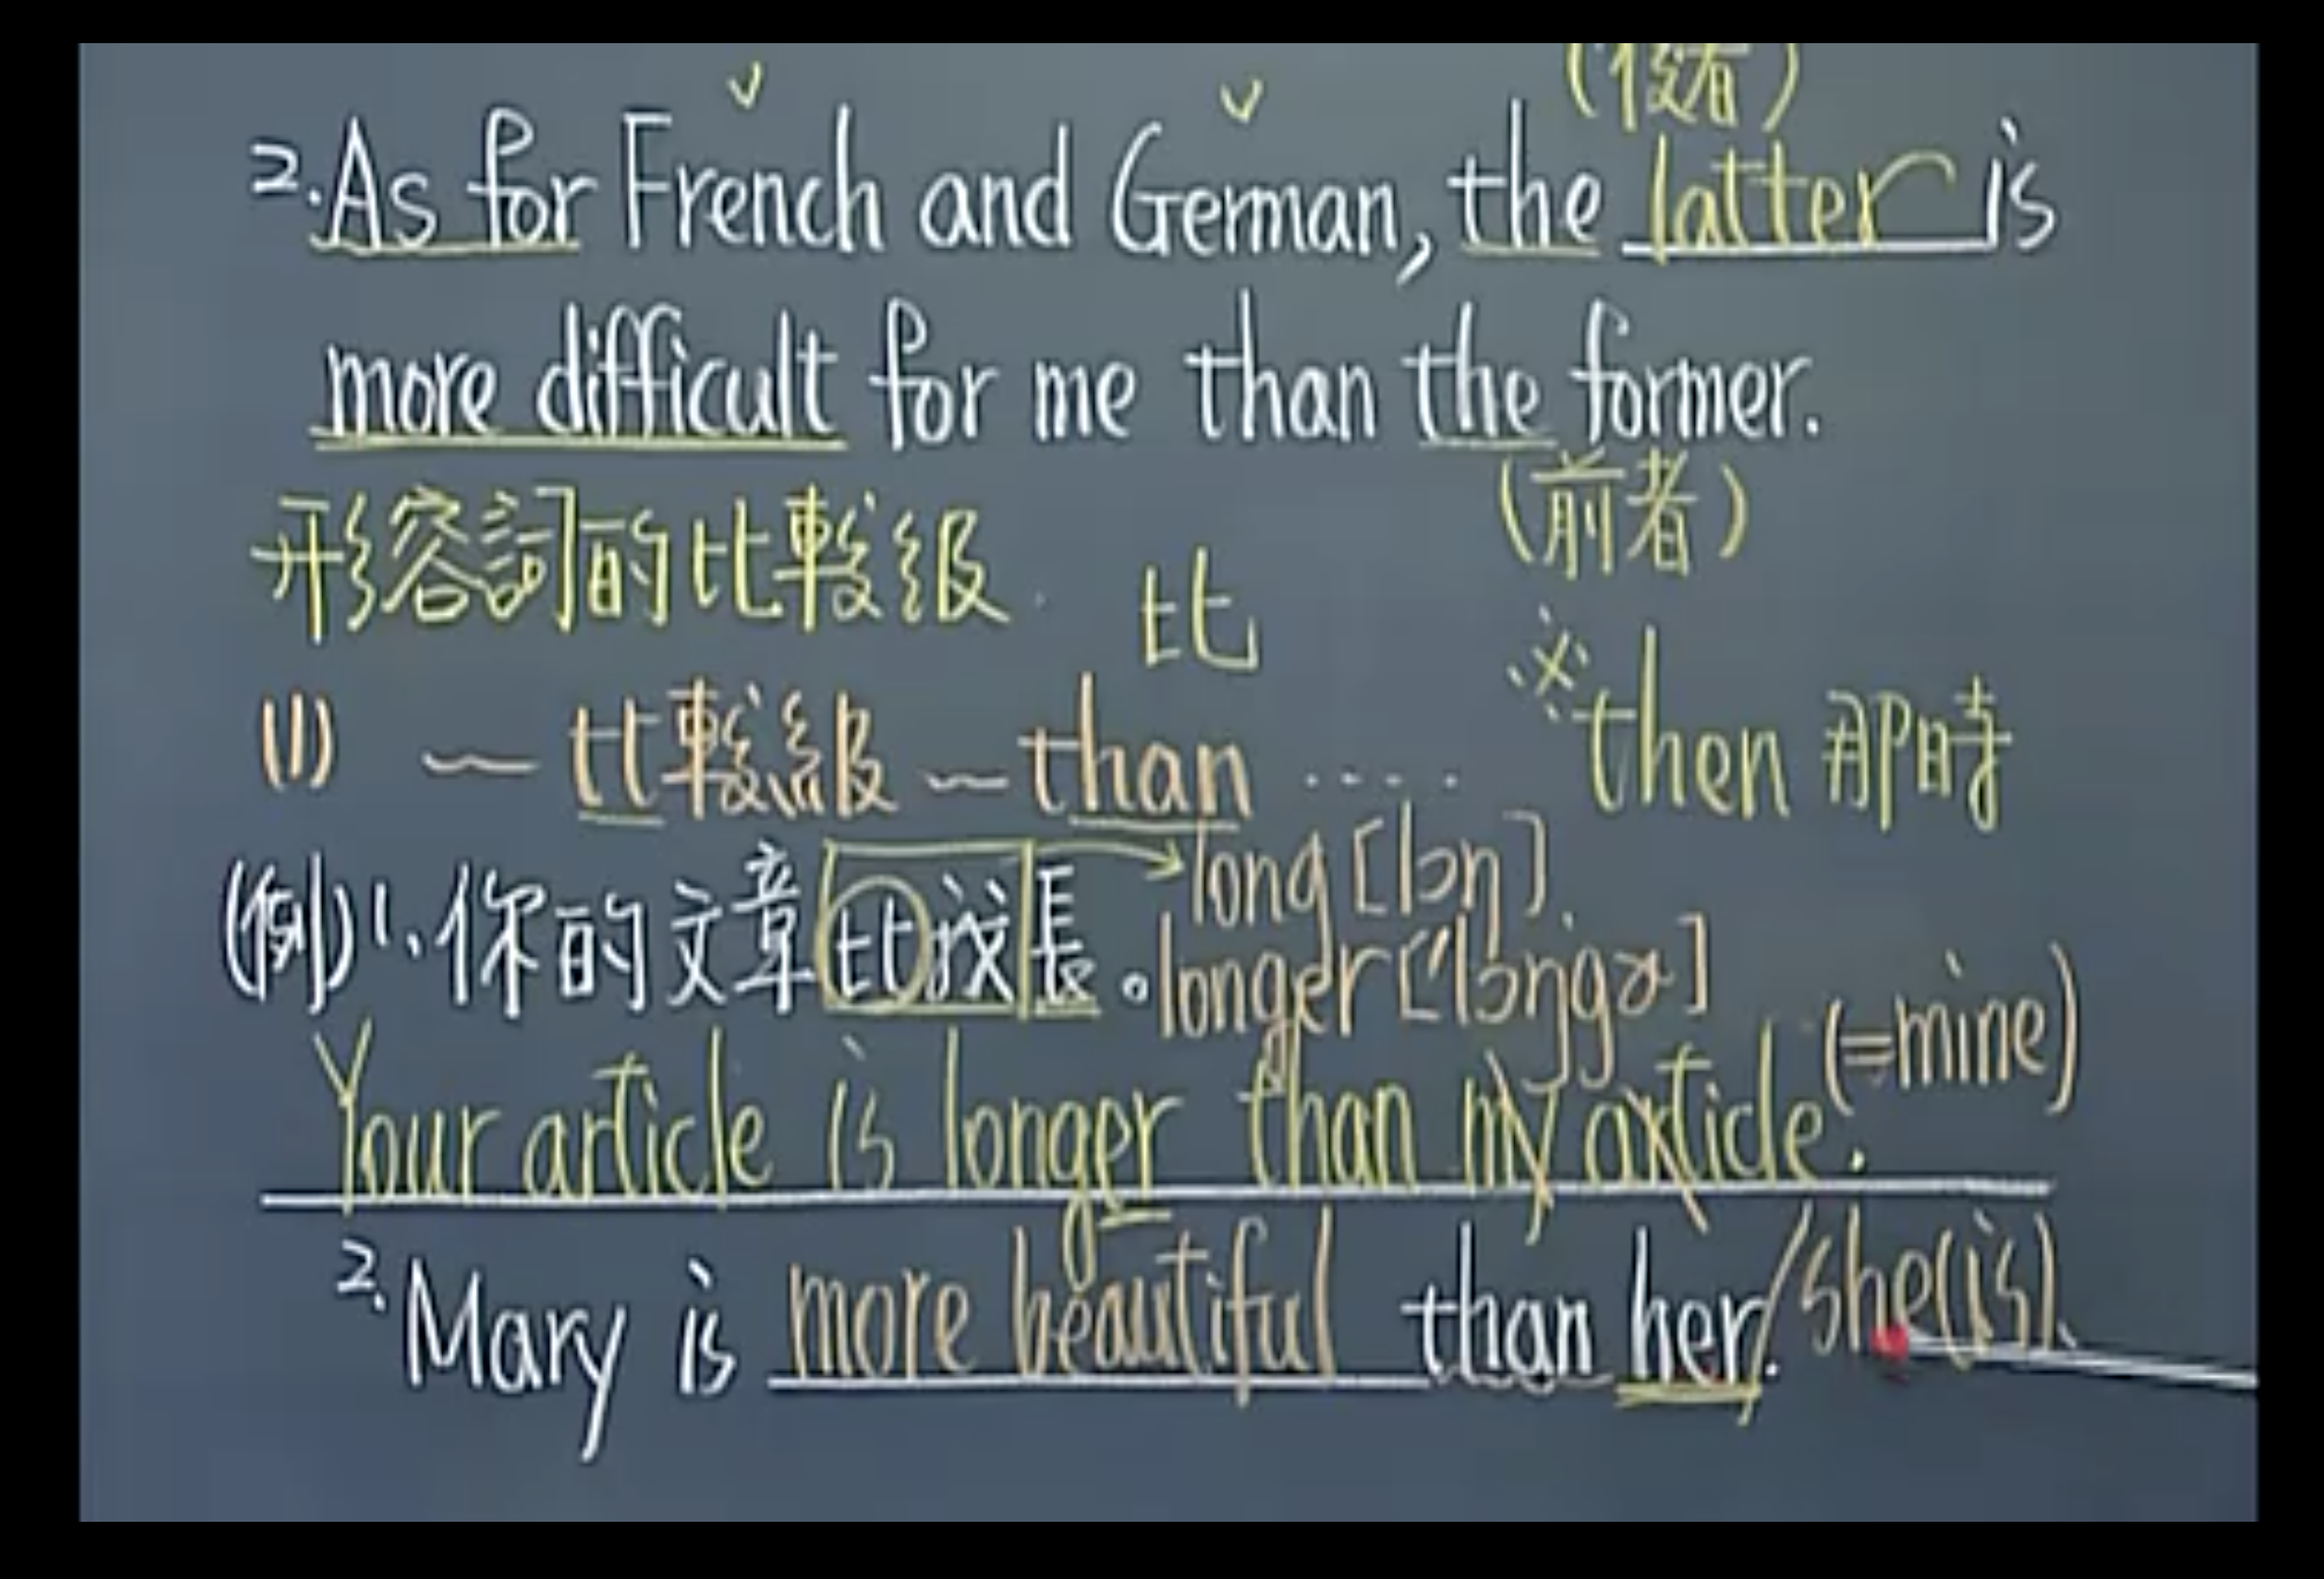 (後者)
2. As for French and German, the latter is
more difficult for me than the former.
(前者)
形容詞的比較級
比
(1) ~ 比較級 ~ than ....
※then 那時
long [lɔŋ].
(例)1. 你的文章比較長。
longer [ˈlɔŋgɚ]
(=mine)
Your article is longer than my article.
2. Mary is more beautiful than her./she(is).